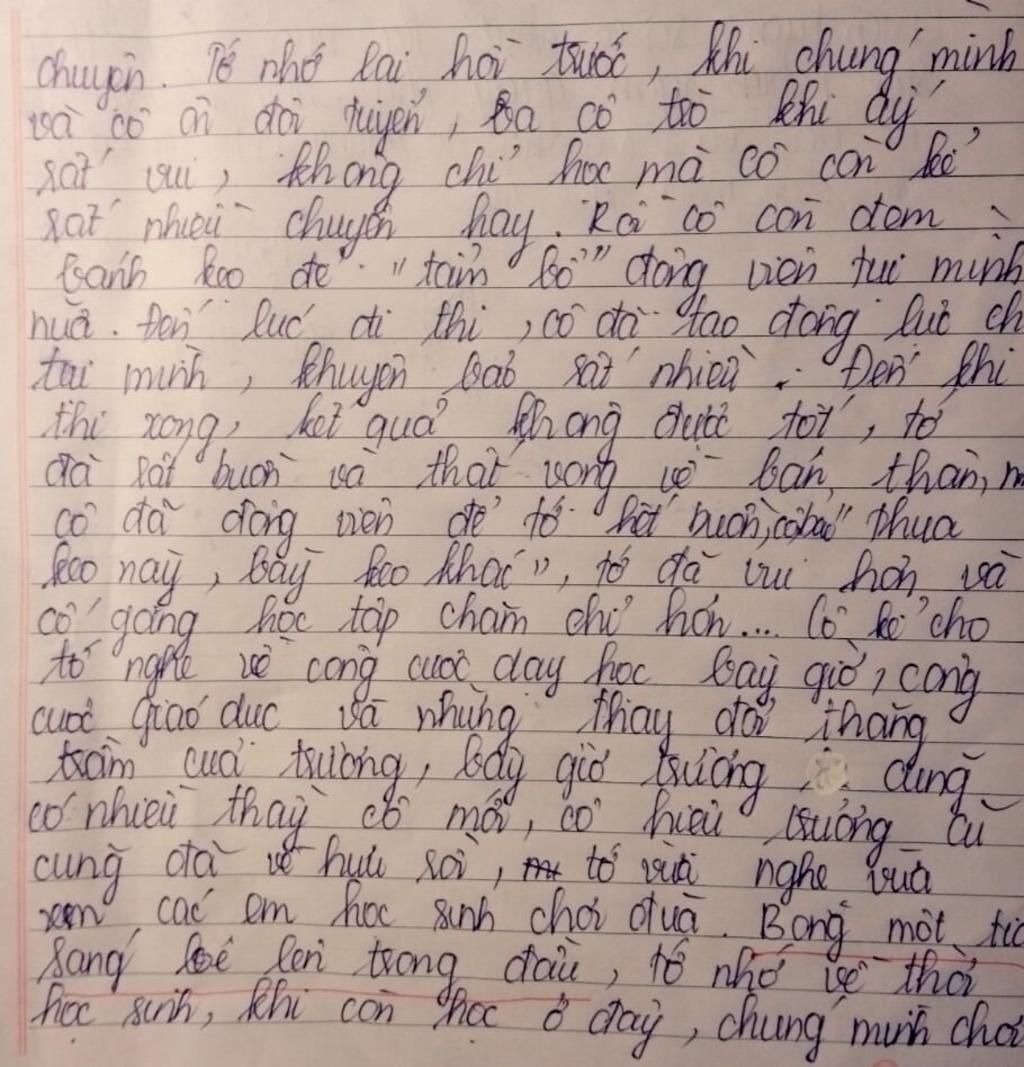 chuyện. Tớ nhớ lại hồi trước, khi chúng mình
và cô ôn đội tuyển, ba cô trò khi ấy
rất vui, không chỉ học mà cô còn kể
rất nhiều chuyện hay. Rồi cô còn đem
bánh kẹo để "tẩm bổ" động viên tụi mình
nữa. Đến lúc đi thi, cô đã tạo động lực ch
tụi mình, khuyên bảo rất nhiều. Đến khi
thi xong, kết quả không được tốt, tớ
đã rất buồn và thất vọng về bản thân, m
cô đã động viên để tớ hết buồn, cô bảo "thua
keo này, bày keo khác", tớ đã vui hơn và
cố gắng học tập chăm chỉ hơn... Cô kể cho
tớ nghe về công cuộc dạy học bây giờ, công
cuộc giáo dục và những thay đổi thăng
trầm của trường, bây giờ trường cũng
có nhiều thầy cô mới, cô hiệu trưởng cũ
cũng đã về hưu rồi, tớ vừa nghe vừa
xem các em học sinh chơi đùa. Bỗng một tia
sáng lóe lên trong đầu, tớ nhớ về thời
học sinh, khi còn học ở đây, chúng mình chơi